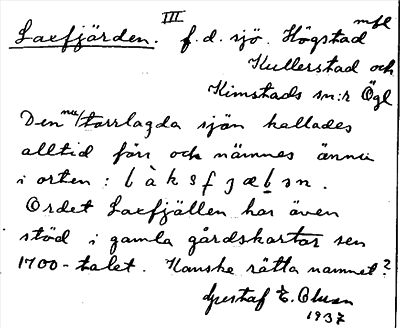 III
Laxfjärden. f.d. sjö. Högstad mfl
Kullerstad och
Kimstads sn:r Ögl
Den nu/torrlagda sjön kallades
alltid förr och nämnes ännu
i orten :
Ordet Laxfjällen har även
stöd i gamla gårdskartor sen
1700-talet. Kanske rätta namnet?
Gustaf E. Olsson
1937